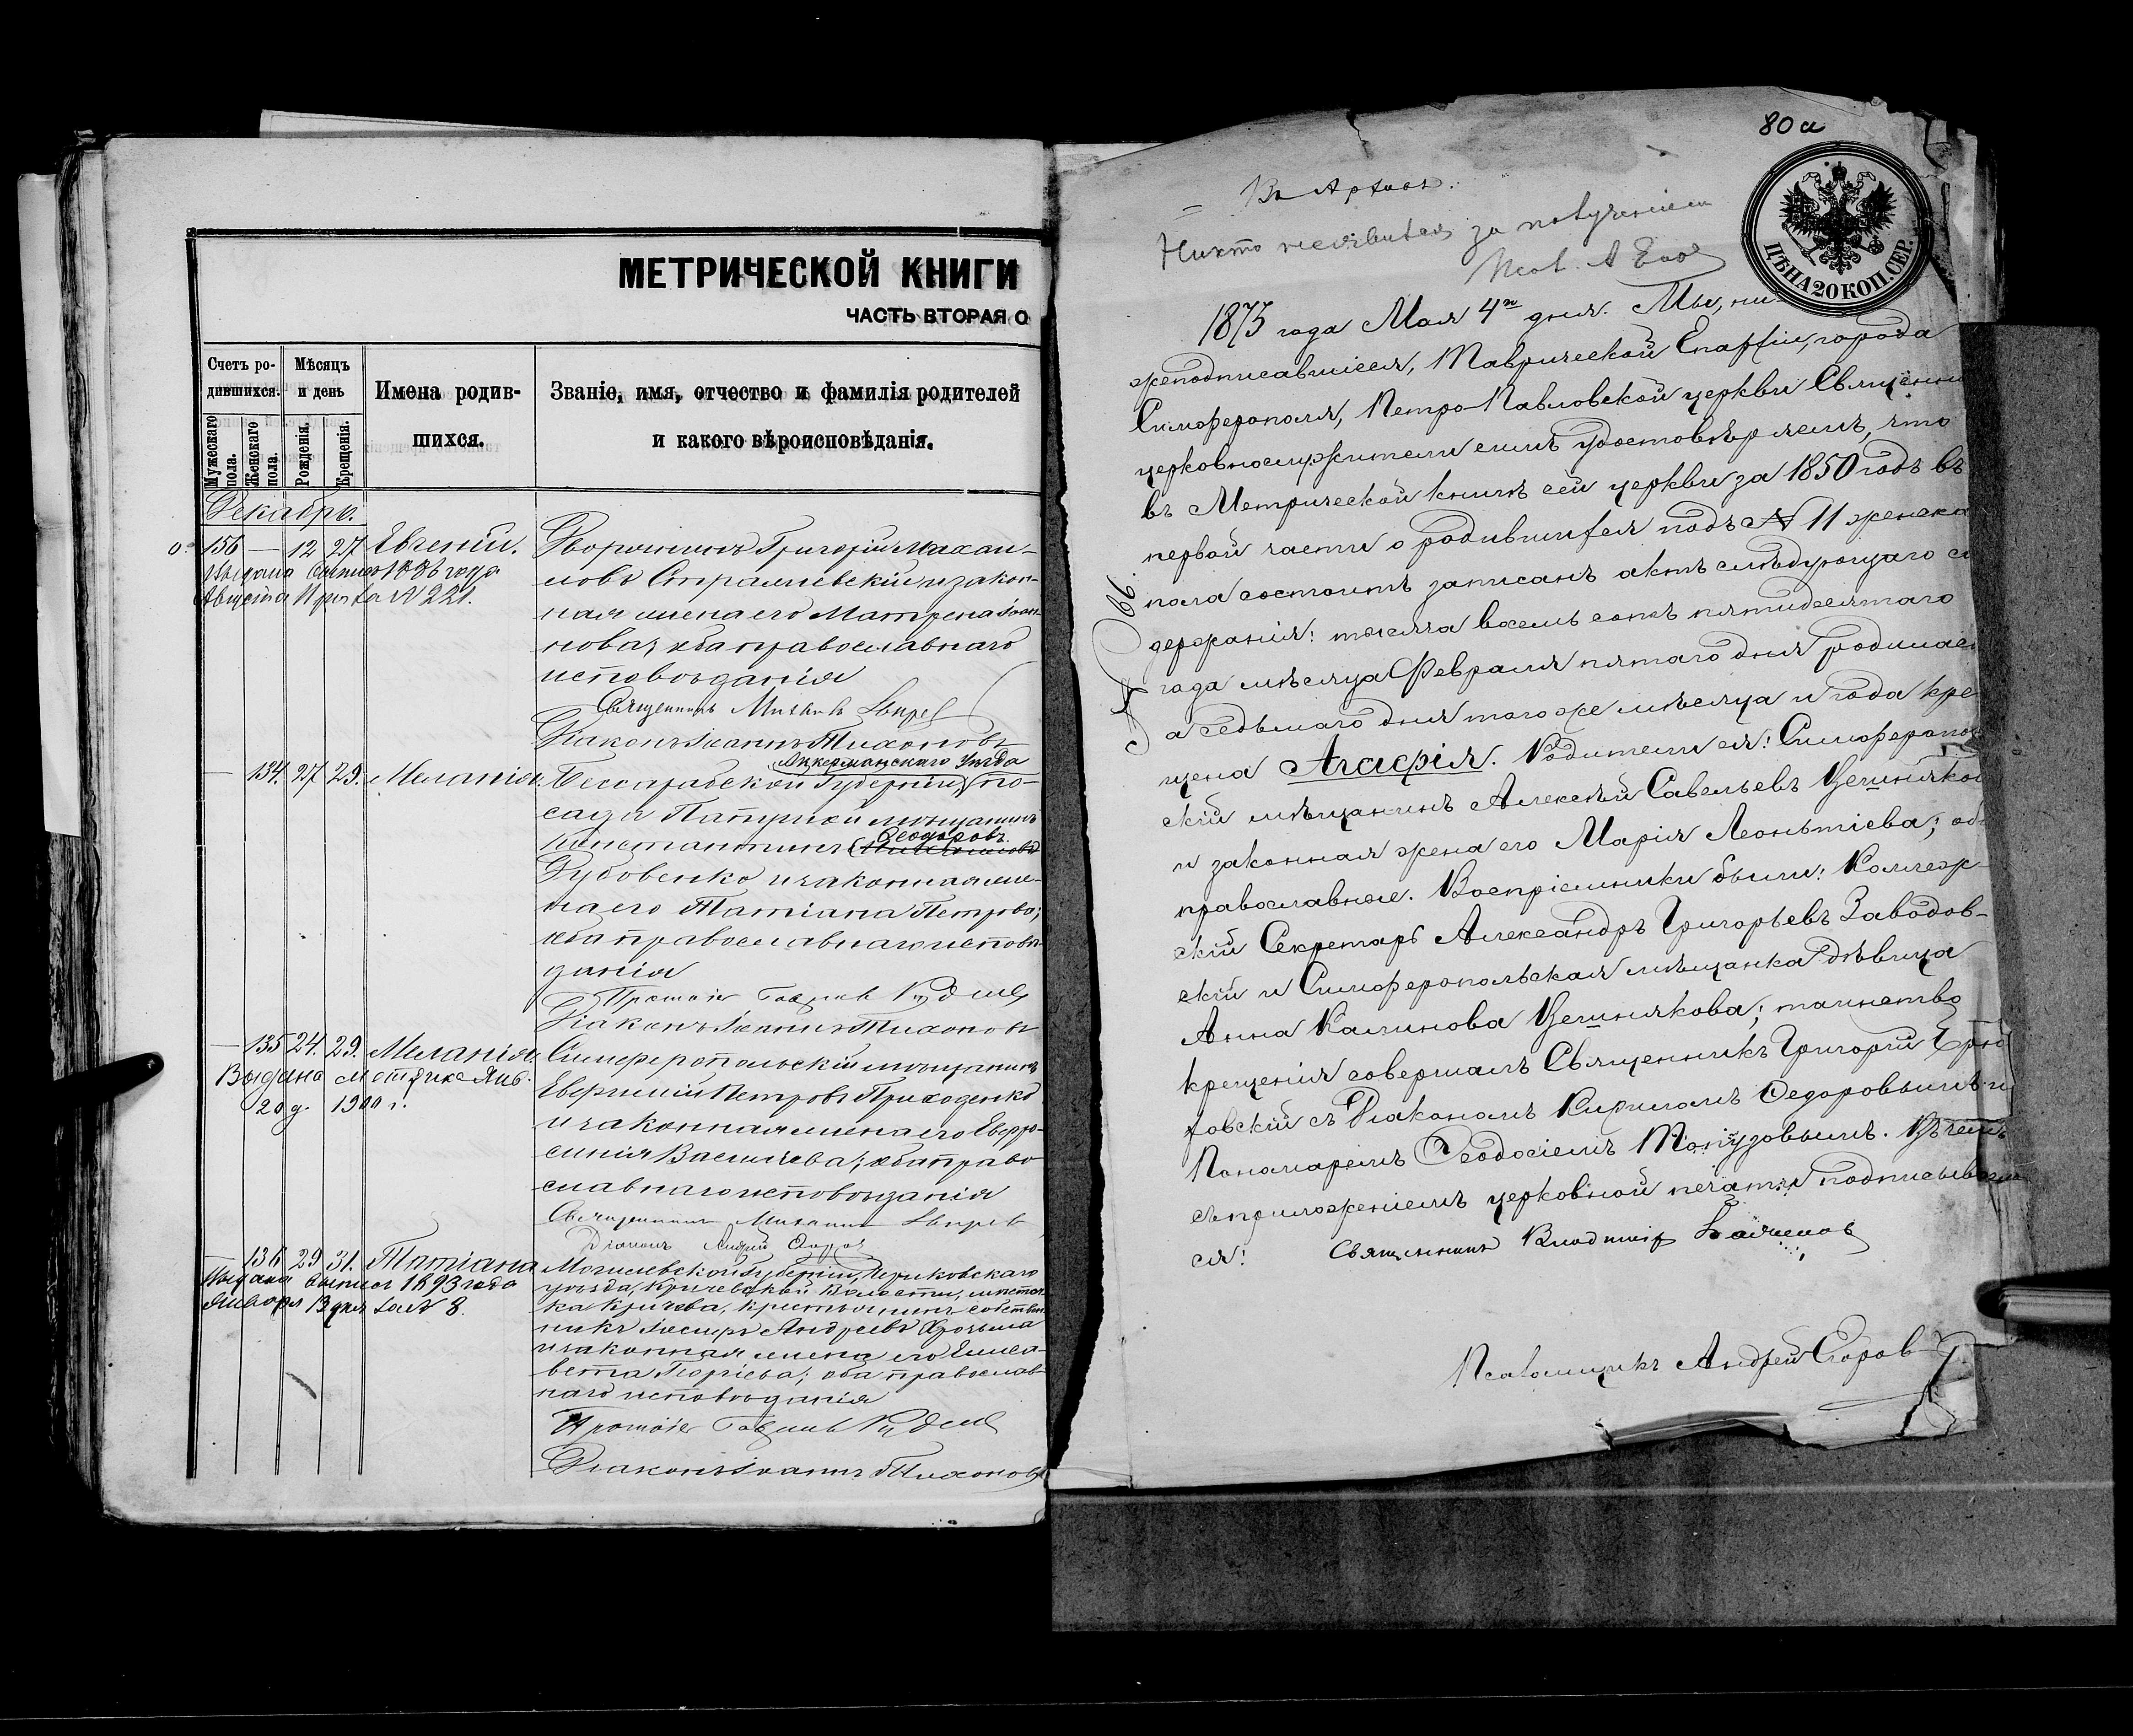 МЕТРИЧЕСКОЙ КНИГИ
ЧАСТЬ ВТОРАЯ О
Счетъ ро-
дившихся.
Мѣсяцъ
и день
Имена родив-
шихся.
Званіе, имя, отчество и фамилія родителей
и какого вѣроисповѣданія.
Мужескаго
пола.
Женскаго
пола.
Рожденія.
Крещенія.
Декабрь.
156 — 12 27 Евгеній.
Выдана 1886 года
Августа № 221.
Дворянинъ Григорій
и закон-
ная жена его Матрена Іоан-
нова, оба православнаго
исповѣданія
Священникъ Михаилъ
Діаконъ Іоаннъ Тихоновъ
— 134. 27 29. Меланія.
Аккерманскаго Уѣзда
Бессарабской Губерніи по-
сада мѣщанинъ
Константинъ Ѳеодоровъ
Дубовенко и законная же-
на его Татіана Петрова;
оба православнаго исповѣ-
данія
Діаконъ Іоаннъ Тихоновъ
— 135 24. 29. Меланія.
Выдана метрика Янв.
20 д. 1900 г.
Симферопольскій мѣщанинъ
Петровъ Приходенко
и законная жена его Евфро-
синія Васильева; оба право
славнаго исповѣданія
Священникъ Михаилъ
— 136 29 31. Татіана
Выдана выпись 1893 года
Января 13 дня за № 8.
Могилевской Губерніи, Чериковскаго
уѣзда, Кричевской Волости, мѣстеч-
ка Кричева, крестьянинъ собствен-
никъ Іосифъ Андреевъ
и законная жена его Елиса-
вета Георгіева; оба православ-
наго исповѣданія
Діаконъ Іоаннъ Тихоновъ
80 а
Въ Архивъ.
Никто неявился за полученіемъ
Псал. А
ЦѢНА 20 КОП. СЕР.
1873 года Мая 4го дня. Мы, ни-
жеподписавшіеся, Таврической Епархіи, города
Симферополя, Петро-Павловской церкви Священно
церковнослужители симъ удостовѣряемъ, что
въ Метрической книгѣ сей церкви за 1850 годъ въ
первой части о родившихся подъ № 11 женска
пола состоитъ записанъ актъ слѣдующаго со
держанія: тысяча восемь сотъ пятидесятаго
года мѣсяца Февраля пятаго дня родилась
а седьмаго дня тогоже мѣсяца и года кре
щена Агафія. Родители ея: Симферополь
скій мѣщанинъ Алексѣй Савельевъ
и законная жена его Марія Леонтіева; оба
православные. Воспріемники были: Коллеж-
скій Секретарь Александръ Григорьевъ Заводов-
скій и Симферопольская мѣщанка дѣвица
Анна Калинова таинство
крещенія совершалъ Священникъ Григорій
ховскій съ Діакономъ Кириломъ Ѳедоровымъ и
Пономаремъ Ѳеодосіемъ Въ чемъ
съ приложеніемъ церковной печати подписываем
ся:
Священникъ Владиміръ
Псаломщикъ Андрей Егоров
№ 66.